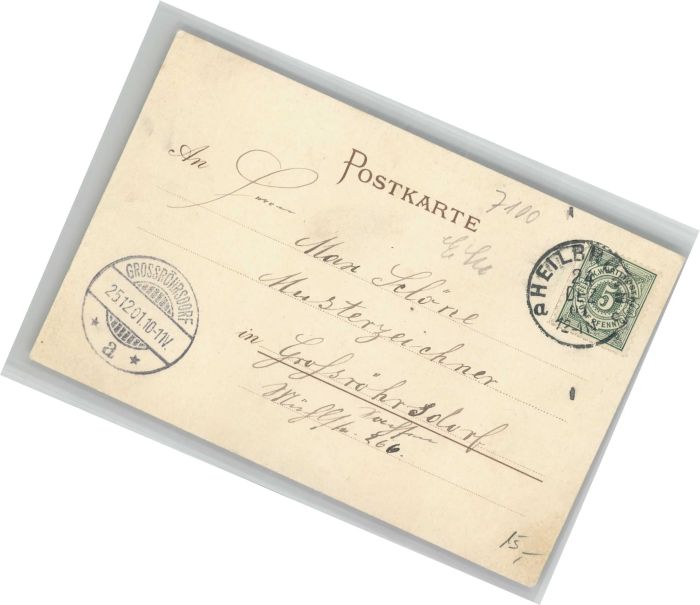 POSTKARTE
7100
An
Max Schöne
Musterzeichner
in Grossröhrsdorf
Mühlstr. 266.
GROSSRÖHRSDORF
25.12.01.10-11V.
a
HEILBR
5
PFENNIG
15,-